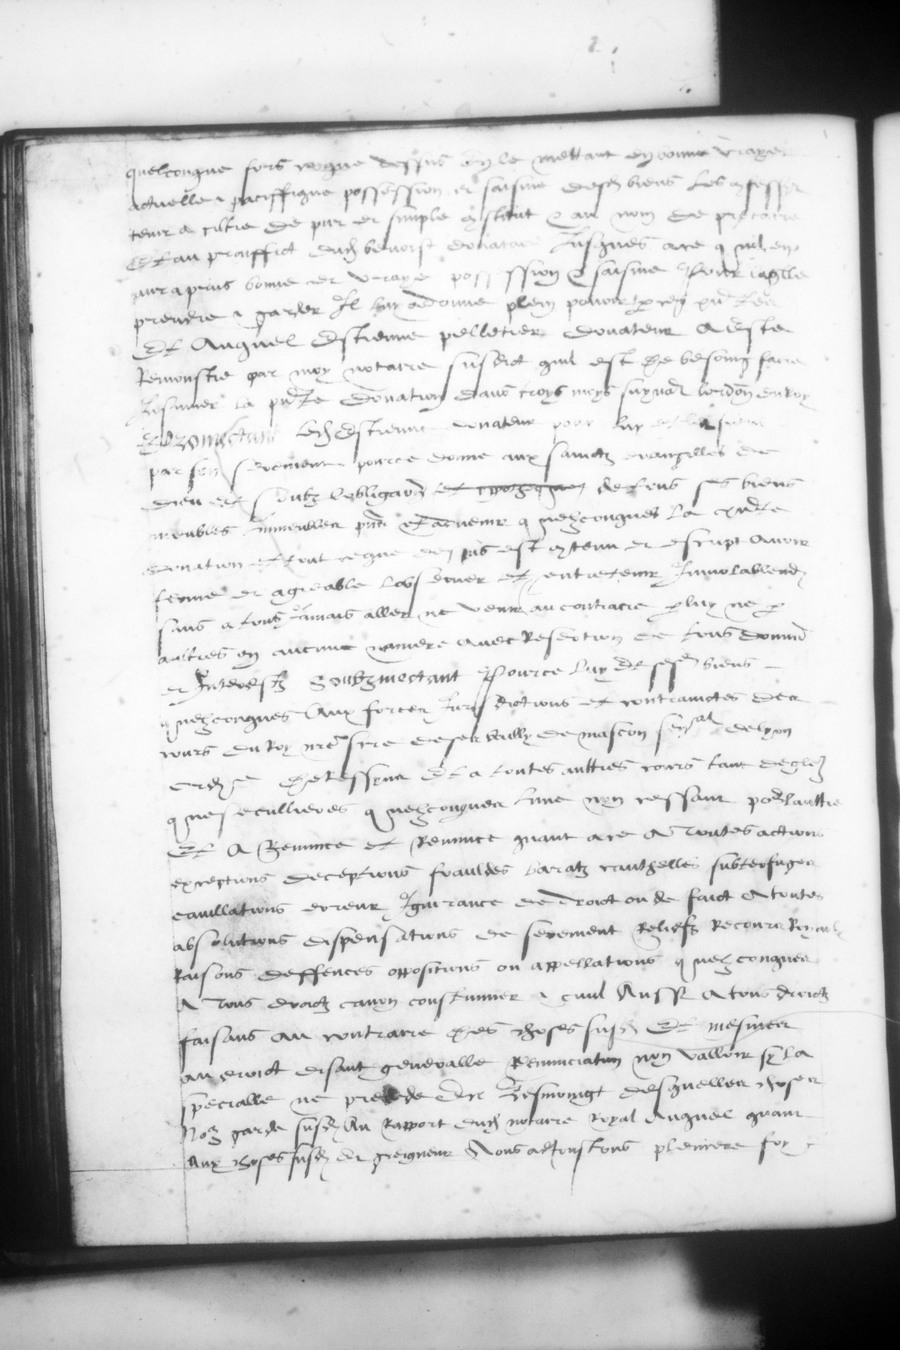 quelconque fors ce que dessus En le mettant en bonne vraye
actuelle & paciffique possession et saisine desd biens Les confesser
tenir a tiltre de pur et simple constitut & au nom de precaire
Et au prouffict dud benoist donataire Jusques a ce quil en
aura prins bonne et vraye possession & saisine Pour laqlle
prendre & garder Il luy a donne plein pouvoir
Et Auquel Estienne pelletier donateur A este
Remonstre par moy notaire susdict quil est de besoing faire
Insinuer la pnte donation dans troys moys suyvat lordon du Roy
Promectant led Estienne donateur pour luy et les siens
par son serement pource donne aux sainctz evangilles de
dieu et soubz lobligaon de tous ses biens
meubles Immeubles pns et advenir quelzconques La pnte
donation et tout ce que cy dessus est contenu et escript Avoir
ferme et agreable Lobserver et entretenir Inviolablemet
sans a tous Jamais aller ne venir au contraire p luy ne p
aultres en aucune maniere Avec Restitution de tous dommd
et Interestz Soubzmectant Pource luy et sesd biens
quelzconques Aux forces Jurisdictions et contrainctes des
cours du Roy nre sire de ses bailly de mascon senal de lyon
Et a toutes aultres cours tant deglez
que secullieres quelzconques Lune non cessant pour laultre
Et A Renonce et Renonce quant a ce A Toutes actions
exceptions deceptions frauldes baratz cauthelles subterfuges
cavillations erreur Ignorance de droict ou de faict A toutes
absolutions dispensations de serement Reliefz Recours Royaulx
Raisons deffences oppositions ou appellations quelzconques
A Tous droictz canon coustumier & civil Aussi A tous droictz
faisans Au contraire des choses susd Et mesmes
au droict disant generalle Renunciation non valloir sy la
specialle ne precede En Tesmoingt desquelles choses
Nous garde susd Au Rapport dud notaire Royal Auquel quant
Aux choses susd et greigneur Nous adjoustons pleniere foy